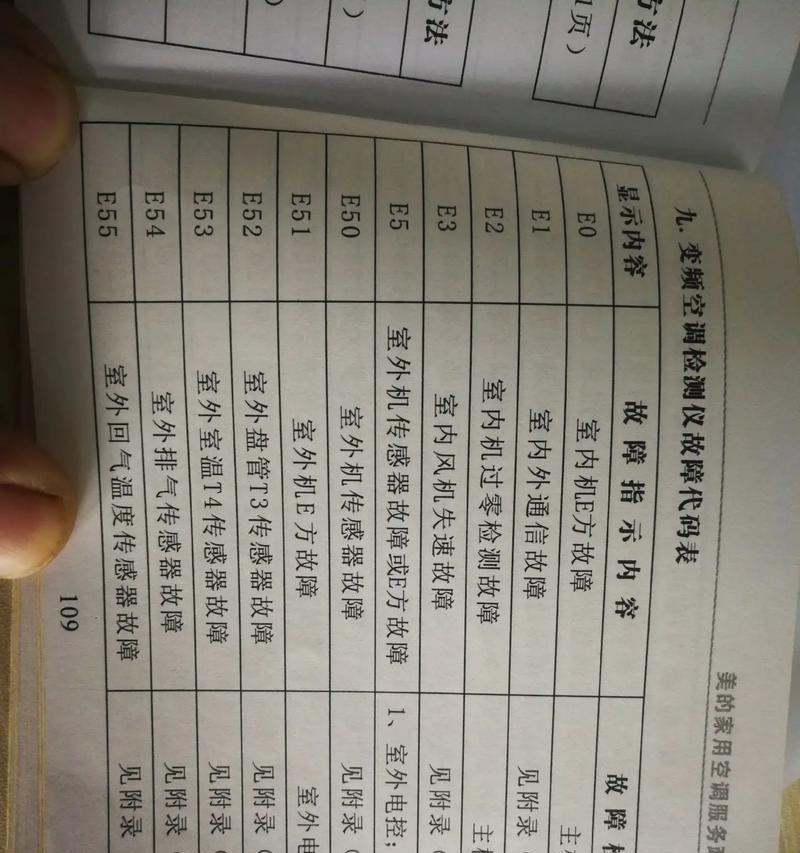 方法
1页）
方法
）
）
美的家用空调服务
九.变频空调检测仪故障代码表
显示内容 故障指示内容 故障
E0 室内机E方故障 主
E1 室内外通信故障 见附录
E2 室内机过零检测故障 主
E3 室内风机失速故障 见附录（
E5 室外机传感器故障或E方故障 1、室外电控；
E50 室外机传感器故障 见附录（
E51 室外机E方故障 室外电
E52 室外盘管T3传感器故障 见附录（
E53 室外室温T4传感器故障 见附录（
E54 室外排气传感器故障 见附录
E55 室外回气温度传感器故障 见附录
109